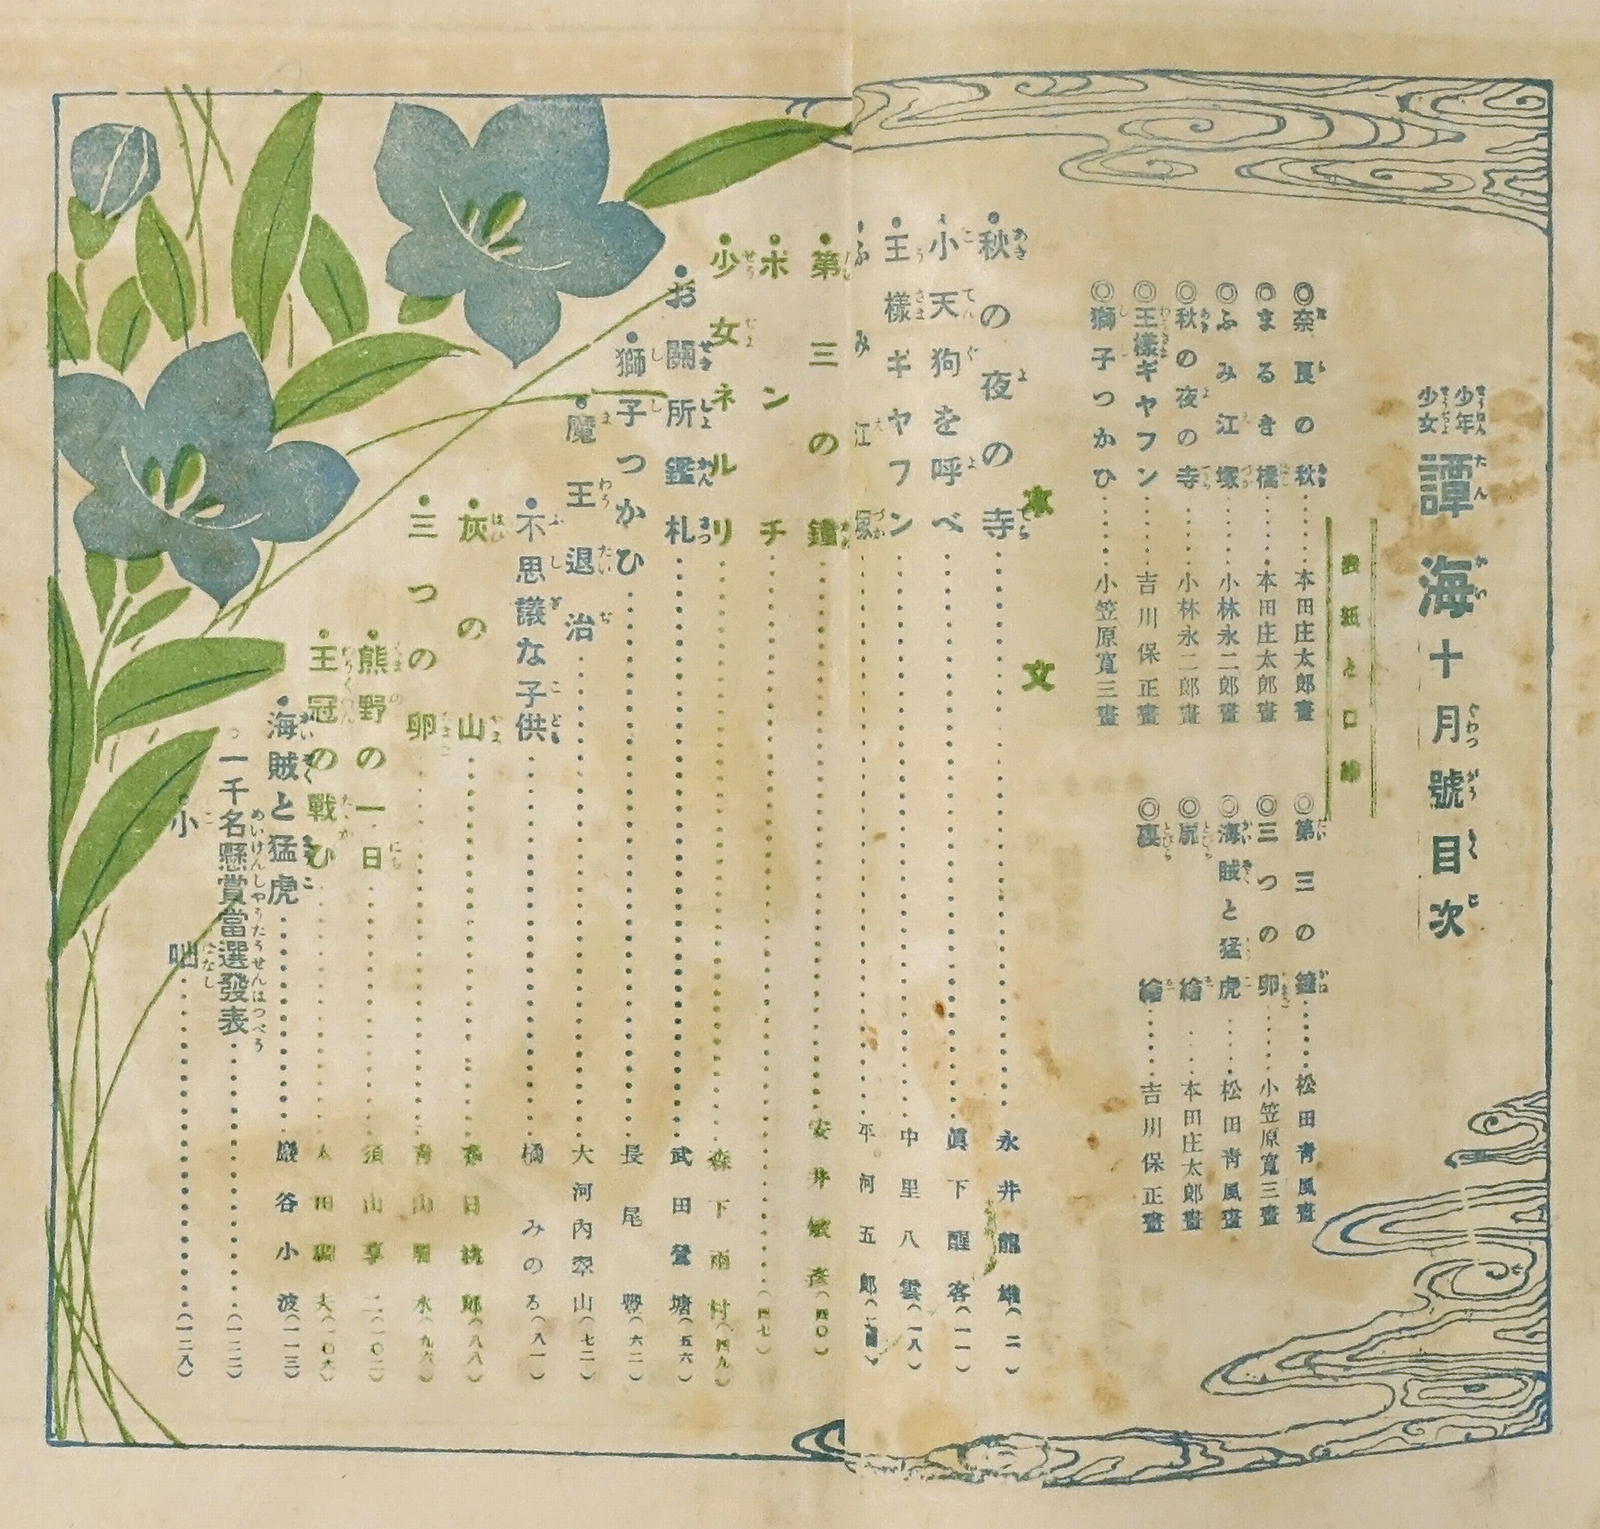 少年少女 譚海十月號目次
表紙と口繪
◎奈良の秋……本田庄太郎畫
◎まるき橋……本田庄太郎畫
◎ふみ江塚……小林永二郎畫
◎秋の夜の寺……小林永二郎畫
◎王樣ギヤフン……吉川保正畫
◎獅子つかひ……小笠原寬三畫
◎第三の鐘……松田青風畫
◎三つの卵……小笠原寬三畫
◎海賊と猛虎……松田青風畫
◎扉繪……本田庄太郎畫
◎裏繪……吉川保正畫
本文
秋の夜の寺……永井龍雄(二)
小天狗を呼べ……眞下醒客(一一)
王樣ギヤフン……中里八雲(一八)
ふみ江塚……平河五郎
第三の鐘……安井敏彥(四〇)
ポンチ……(四七)
少女ネルリ……森下雨村(四九)
お關所鑑札……武田鶯塘(五六)
獅子つかひ……長尾豐(六二)
魔王退治……大河內翠山(七二)
不思議な子供……橘みのる(八一)
灰の山……春日桃郎(八八)
三つの卵……青山眉水(九六)
熊野の一日……須山享二(一〇二)
王冠の戰ひ……太田獨夫(一〇六)
海賊と猛虎……巖谷小波(一一三)
一千名懸賞當選發表……(一二二)
小咄……(一二八)